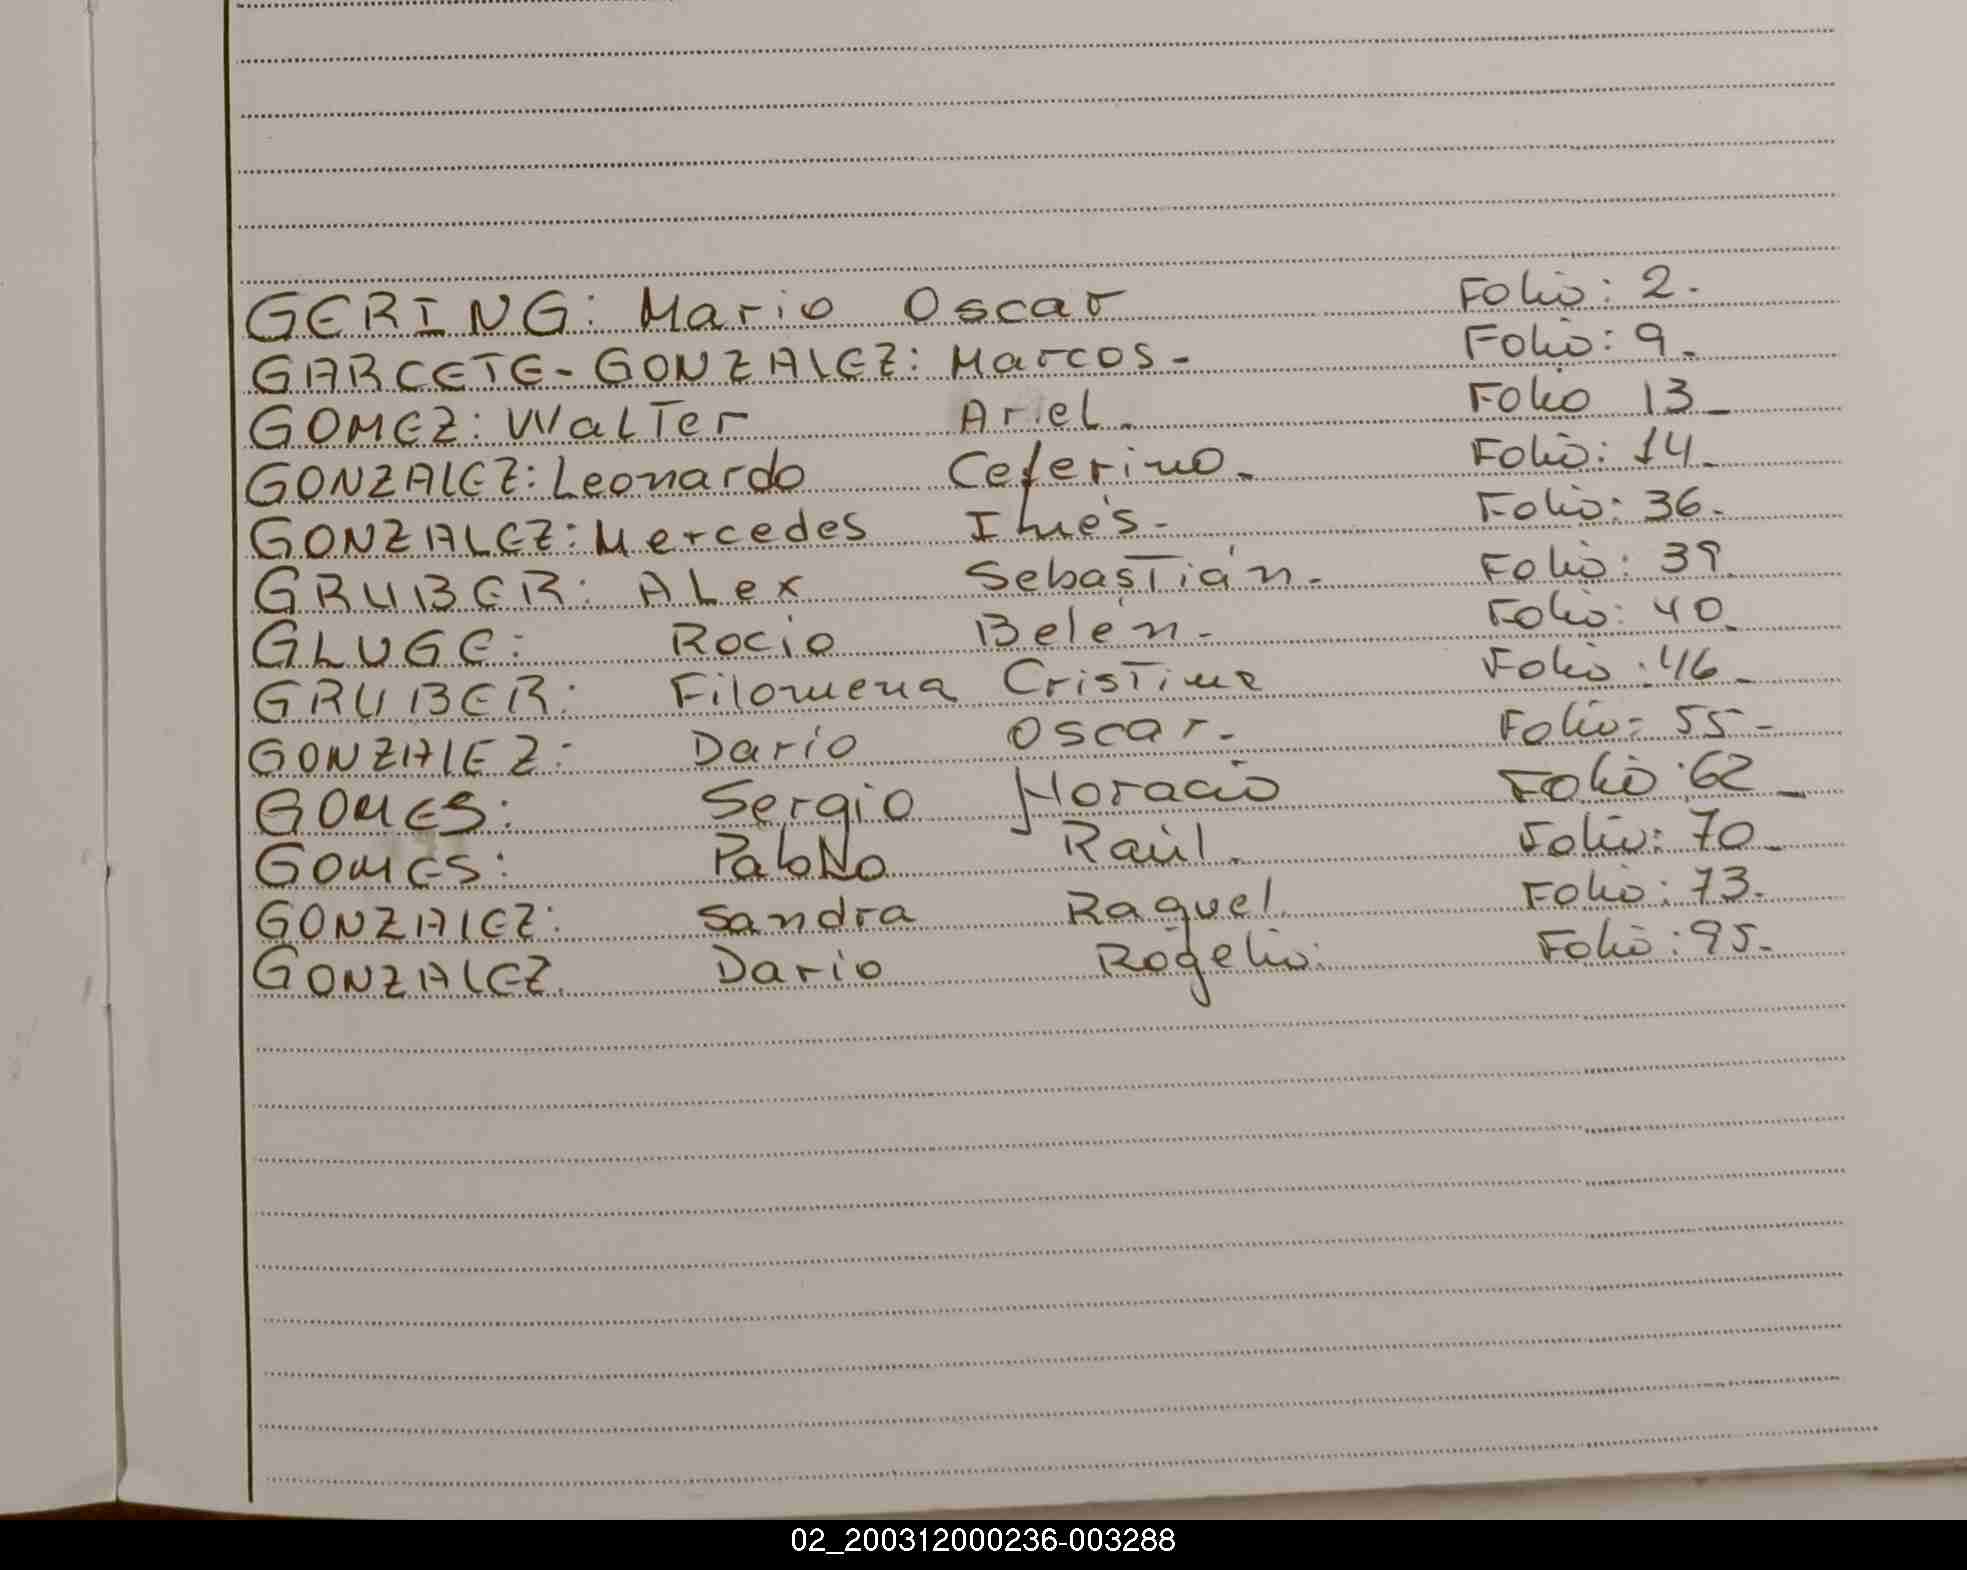 GERING: Mario Oscar Folio: 2.
GARCETE-GONZALEZ: Marcos- Folio: 9.
GOMEZ: Walter Ariel. Folio 13-
GONZALEZ: Leonardo Ceferino. Folio: 14.
GONZALEZ: Mercedes Inués- Folio: 36.
GRUBER: Alex Sebastián. Folio: 39.
GLUGE: Rocio Belén. Folio: 40.
GRUBER: Filomena Cristina Folio: 46.
GONZALEZ: Dario Oscar. Folio: 55-
GOMES: Sergio Horacio Folio: 62-
GOMES: Pablo Raúl. Folio: 70.
GONZALEZ: Sandra Raquel. Folio: 73.
GONZALEZ. Dario Rogelio. Folio: 95.
02_200312000236-003288